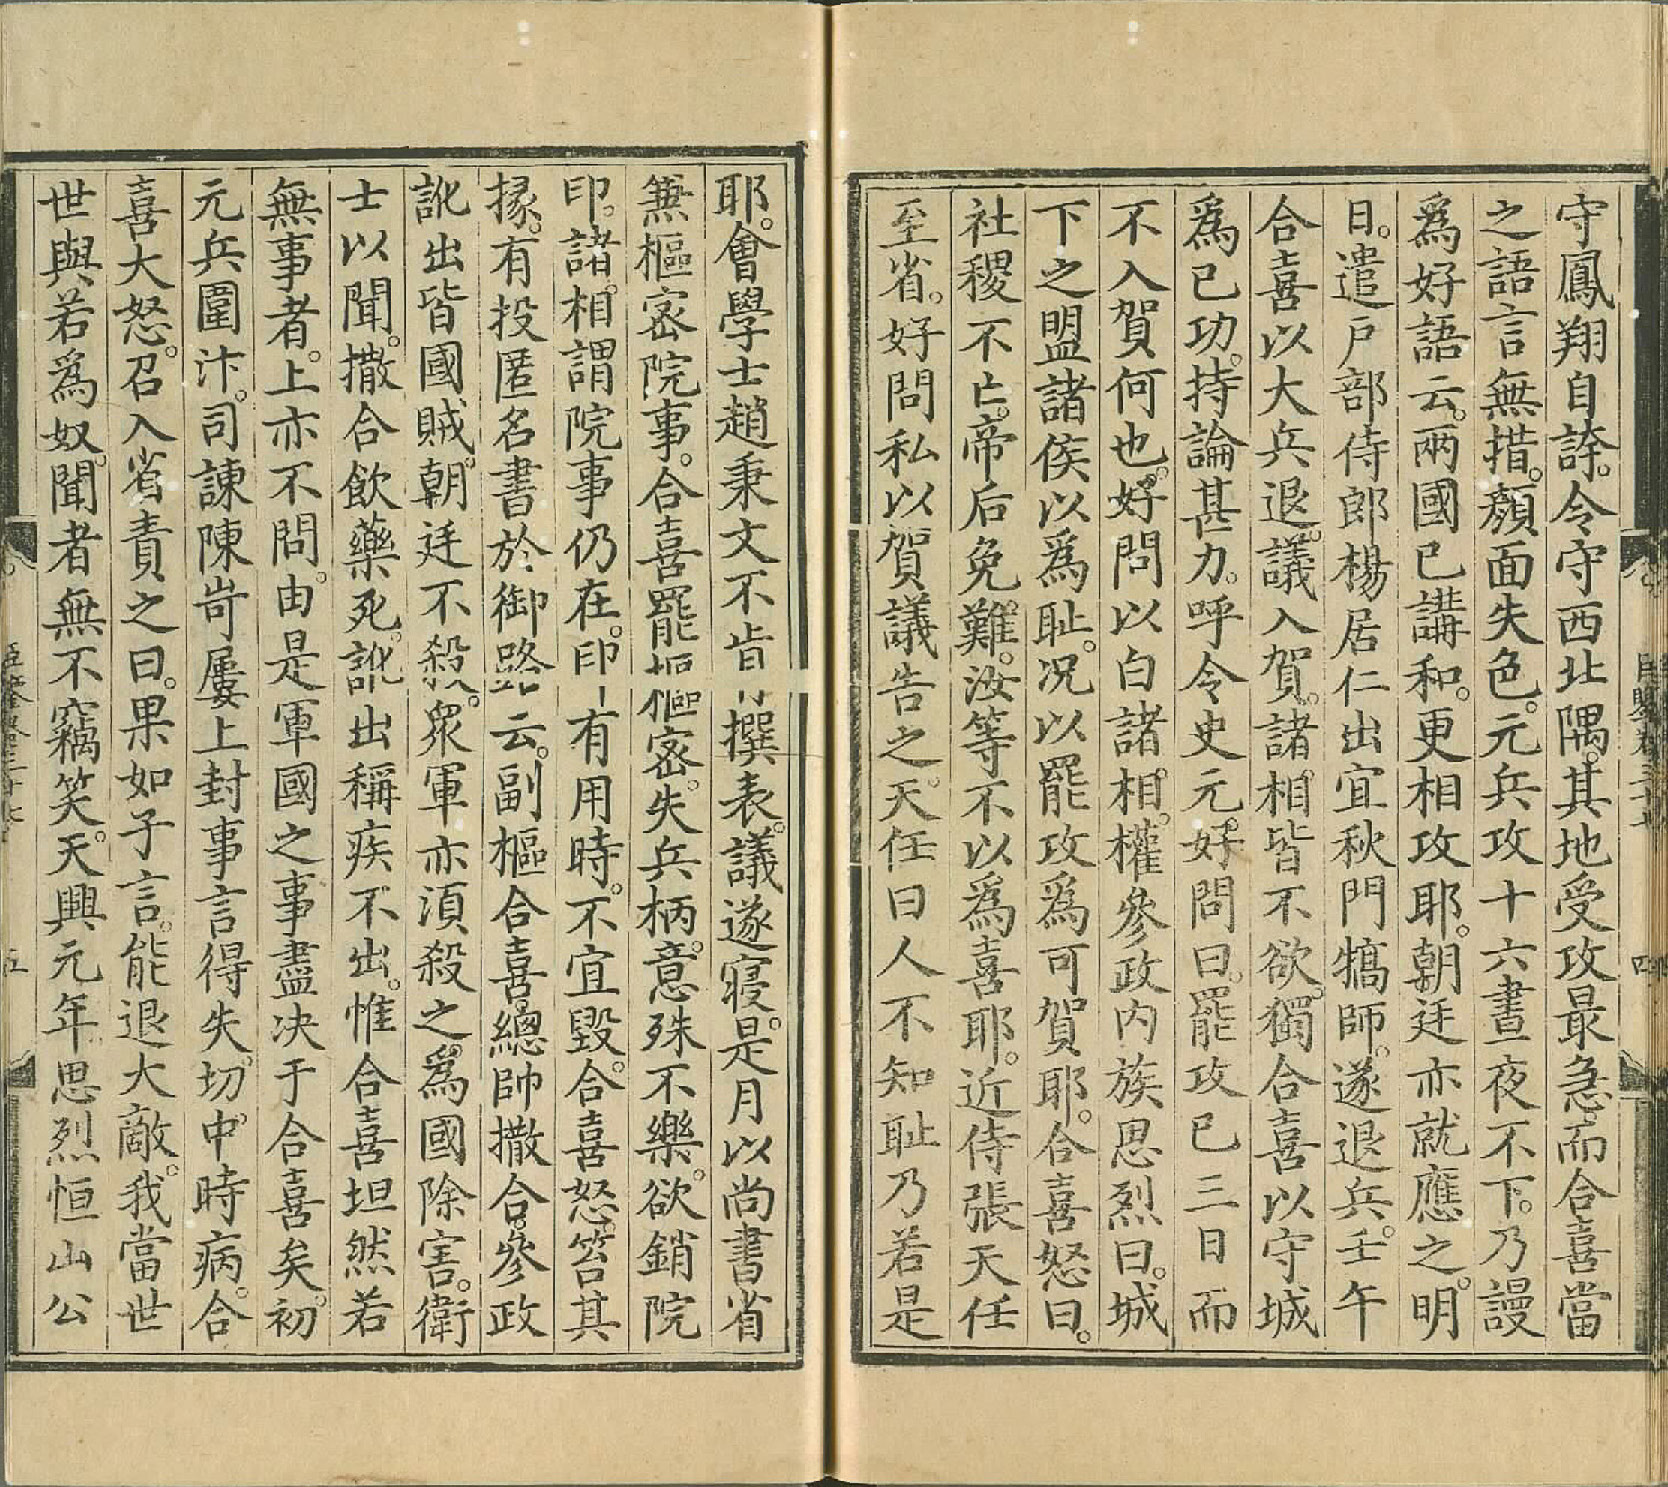 守鳳翔自誇。令守西北隅。其地受攻最急。而合喜當
之語言無措。顏面失色。元兵攻十六晝夜不下。乃謾
為好語云。兩國已講和。更相攻耶。朝廷亦就應之。明
日。遣戶部侍郎楊居仁出宜秋門犒師。遂退兵。壬午
合喜以大兵退。議入賀。諸相皆不欲。獨合喜以守城
爲已功。持論甚力。呼令史元好問曰。罷攻已三日而
不入賀何也。好問以白諸相。權參政內族思烈曰。城
下之盟諸侯以爲恥。况以罷攻爲可賀耶。合喜怒曰。
社稷不亡。帝后免難。汝等不以爲喜耶。近侍張天任
至省。好問私以賀議告之。天任曰人不知恥乃若是
耶。會學士趙秉文不肯撰表。議遂寢。是月以尚書省
兼樞密院事。合喜罷樞密。失兵柄。意殊不樂。欲銷院
印。諸相謂院事仍在。印有用時。不宜毀。合喜怒。笞其
掾。有投匿名書於御路云。副樞合喜。總帥撒合。參政
訛出皆國賊。朝廷不殺。衆軍亦須殺之。爲國除害。衛
士以聞。撒合飲藥死。訛出稱疾不出。惟合喜坦然若
無事者。上亦不問。由是軍國之事盡决于合喜矣。初
元兵圍汴。司諫陳岢屢上封事言得失。切中時病。合
喜大怒。召入省責之曰。果如子言。能退大敵。我當世
世與若爲奴。聞者無不竊笑。天興元年思烈恒山公